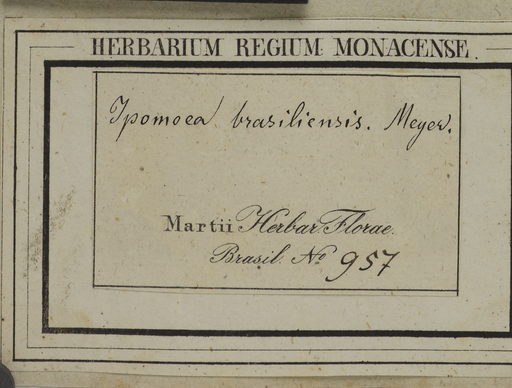 HERBARIUM REGIUM MONACENSE.
Ipomoea brasiliensis. Meyer.
Martii Herbar. Florae
Brasil. No 957